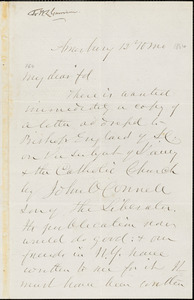 Amesbury 13th 10 mo
My dear fd
There is wanted
immediately a copy of
a letter addressed to
Bishop England of S.C.
on the subject of Slavery
& the Catholic Church
by John O'Connell
son of the Liberator.
Its publication now
would do good: & our
friends in N.Y. have
written to me for it. It
must have been written